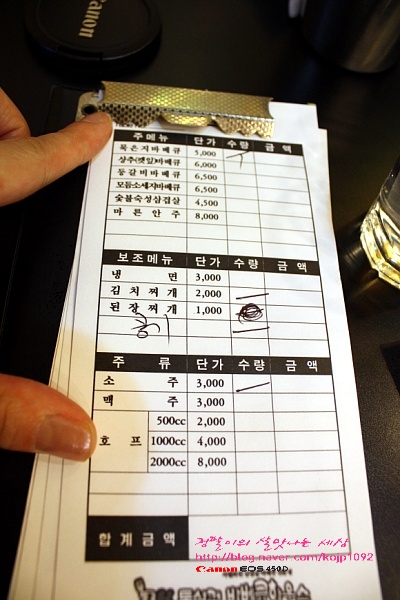 Canon
주메뉴 단가 수량 금액
묵은지바베큐 5,000
상추(깻잎)바베큐 6,000
등갈비바베큐 6,500
모듬소세지바베큐 6,500
숯불숙성삼겹살 4,500
마른안주 8,000
보조메뉴 단가 수량 금액
냉면 3,000
김치찌개 2,000
된장찌개 1,000
주류 단가 수량 금액
소주 3,000
맥주 3,000
500cc 2,000
호프 1000cc 4,000
2000cc 8,000
합계금액
검팔이의 살맛나는 세상
http://blog.naver.com/kojp1092
Canon EOS 450D